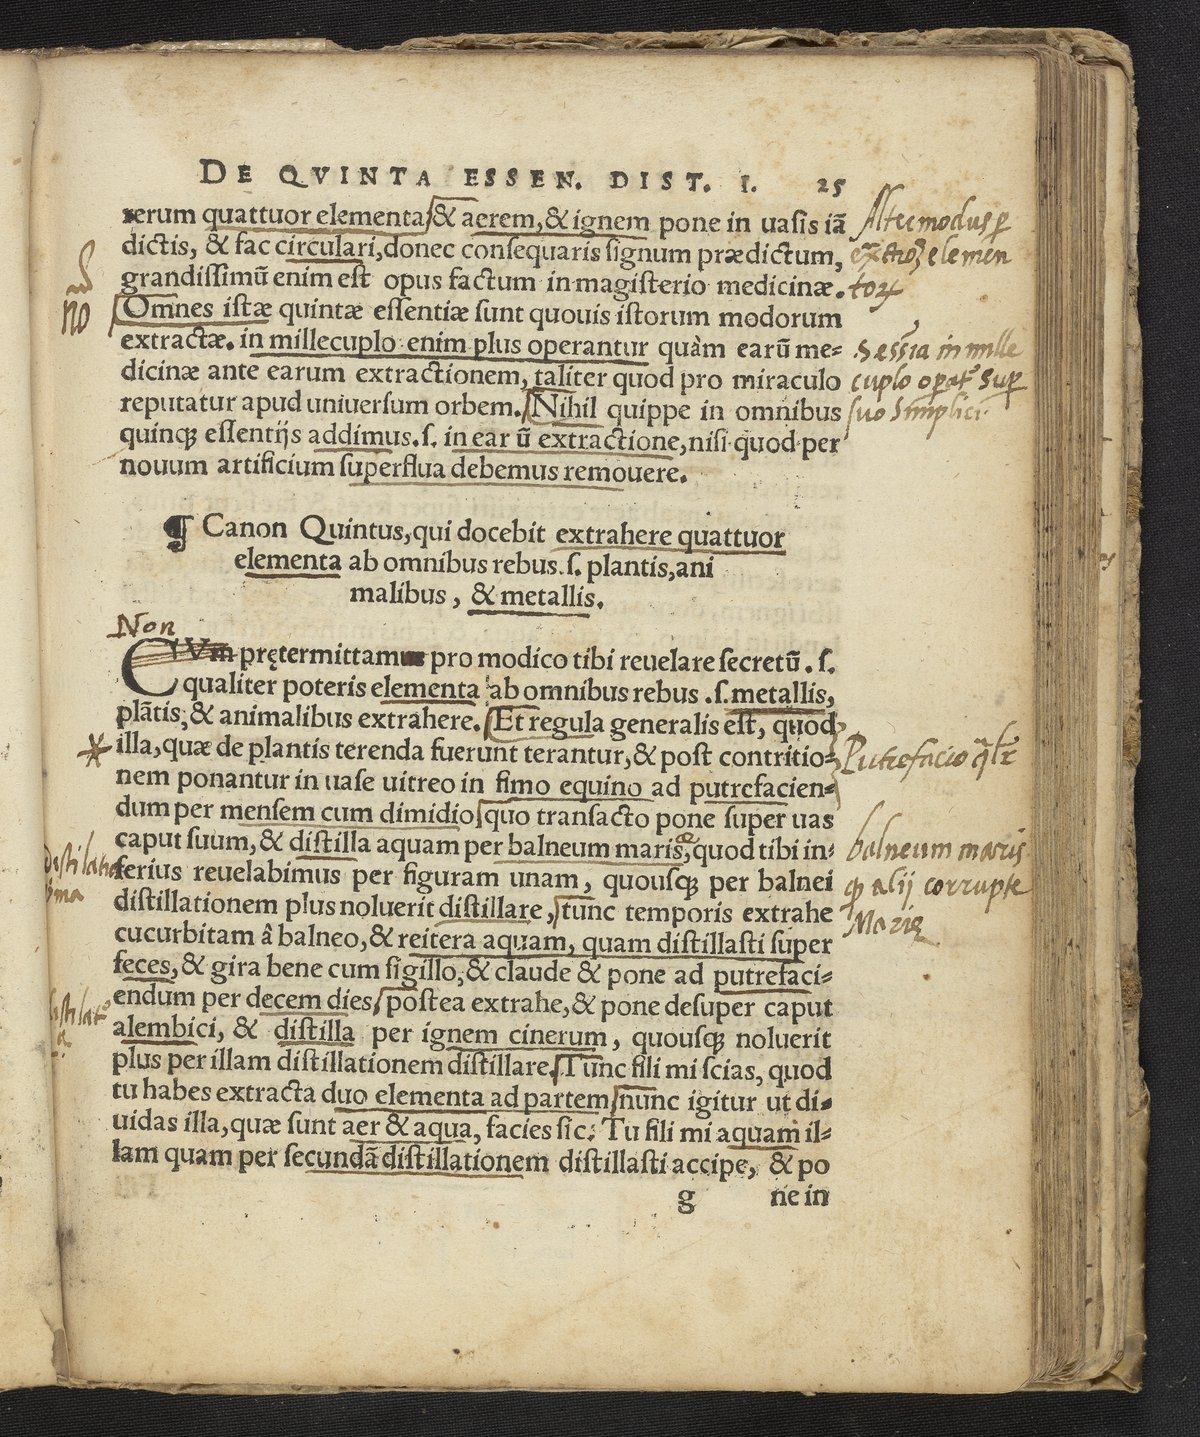 DE QVINTA ESSEN. DIST. I. 25
rerum quattuor elementa & aerem, & ignem pone in uasis iā
dictis, & fac circulari, donec consequaris signum prædictum,
grandissimū enim est opus factum in magisterio medicinæ.
Omnes istæ quintæ essentiæ sunt quouis istorum modorum
extractæ. in millecuplo enim plus operantur quàm earū me=
dicinæ ante earum extractionem, taliter quod pro miraculo
reputatur apud uniuersum orbem. Nihil quippe in omnibus
quinqꝫ essentijs addimus. s. in ear ū extractione, nisi quod per
nouum artificium superflua debemus remouere.
¶ Canon Quintus, qui docebit extrahere quattuor
elementa ab omnibus rebus. s. plantis, ani
malibus, & metallis.
Non
CVm prętermittamus pro modico tibi reuelare secretū. s.
qualiter poteris elementa ab omnibus rebus .s. metallis,
plātis, & animalibus extrahere. Et regula generalis est, quod
illa, quæ de plantis terenda fuerunt terantur, & post contritio=
nem ponantur in uase uitreo in fimo equino ad putrefacien=
dum per mensem cum dimidio quo transacto pone super uas
caput suum, & distilla aquam per balneum maris, quod tibi in=
ferius reuelabimus per figuram unam, quousqꝫ per balnei
distillationem plus noluerit distillare, tunc temporis extrahe
cucurbitam â balneo, & reitera aquam, quam distillasti super
feces, & gira bene cum sigillo, & claude & pone ad putrefaci=
endum per decem dies, postea extrahe, & pone desuper caput
alembici, & distilla per ignem cinerum, quousqꝫ noluerit
plus per illam distillationem distillare. Tunc fili mi scias, quod
tu habes extracta duo elementa ad partem nunc igitur ut di=
uidas illa, quæ sunt aer & aqua, facies sic: Tu fili mi aquam il=
lam quam per secundā distillationem distillasti accipe, & po
g ne in
no
modus
elemen
in mille
cuplo
suo simplici
Putrefacio
balneum maris
alij corrupte
Marię